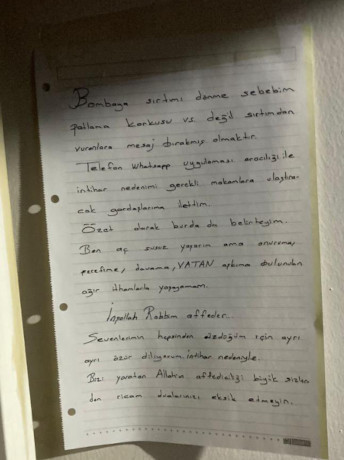 Bombaya sırtımı dönme sebebim
patlama korkusu vs. değil sırtımdan
vuranlara mesaj bırakmış olmaktır.
Telefon Whatsapp uygulaması aracılığı ile
intihar nedenimi gerekli makamlara ulaştıra-
cak gardaşlarıma ilettim.
Özet olarak burda da belirteyim.
Ben aç susuz yaşarım ama onuruma,
şerefime, davama, VATAN aşkıma bulunulan
ağır ithamlarla yaşayamam.
İnşallah Rabbim affeder.
Sevenlerimin hepsinden üzdüğüm için ayrı
ayrı özür diliyorum intihar nedeniyle.
Bizi yaratan Allahın affediciliği büyük sizler
den ricam dualarınızı eksik etmeyin.